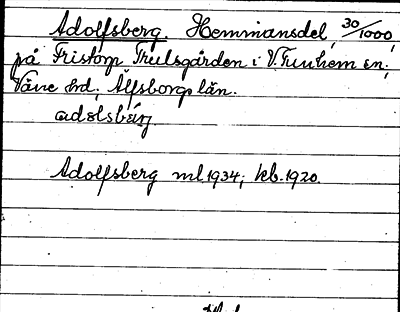 Adolfsberg. Hemmansdel 30/1000
på Fristorp Trulsgården i V. Tunhem sn;
Väne hd; Älfsborgs län.
adolsbärj
Adolfsberg ml. 1934; kb. 1920.